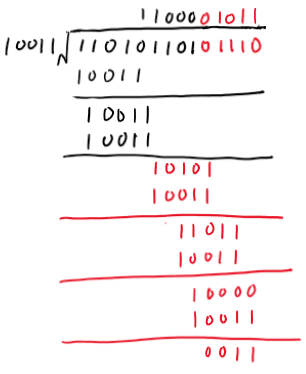 1100001011
10011 11010110101110
10011
10011
10011
10101
10011
11011
10011
10000
10011
0011